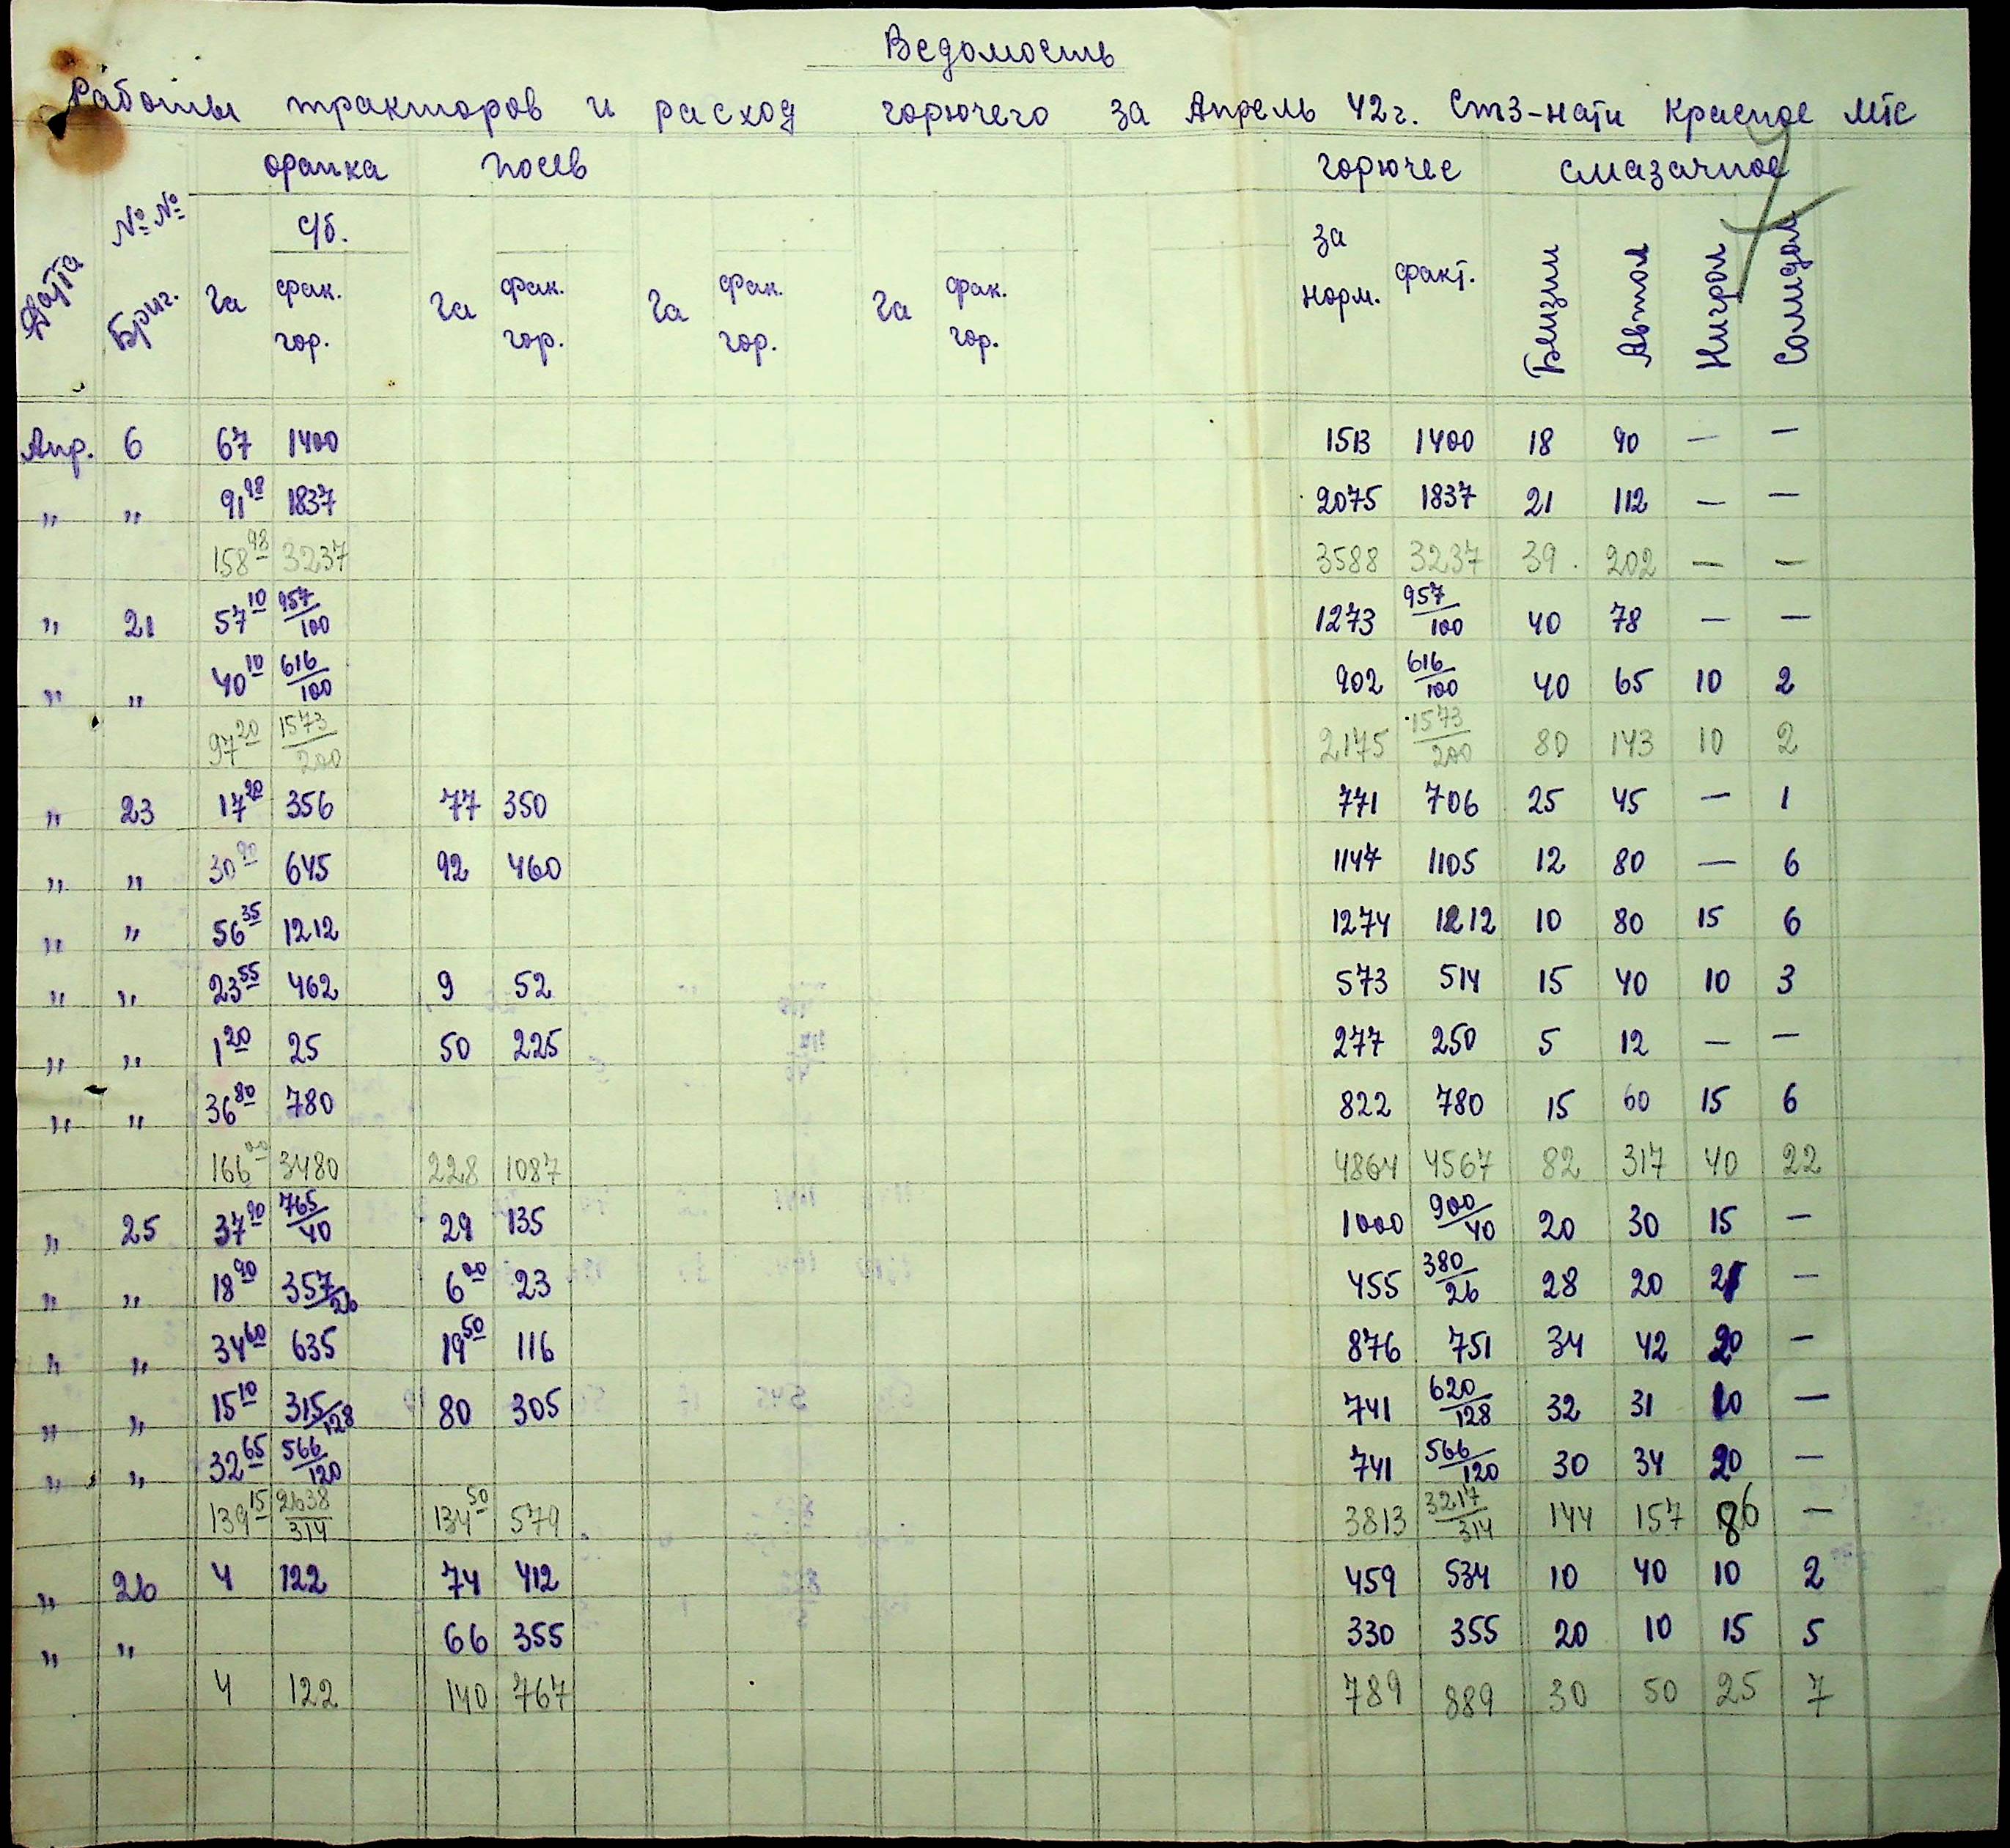 Ведомость
Работы тракторов и расход горючего за Апрель 42г. Стз-нати Красное МТС
Датта №№ Бриг. орапка посев горючее смазачное
с/б.
Га фак. гор. Га фак. гор. Га фак. гор. Га фак. гор. за норм. факт. Бензин Автол Нигрол Солидол
Апр. 6 67 1400 1513 1400 18 90 — —
„ „ 91 98 1837 2075 1837 21 112 — —
158 98 3237 3588 3237 39 . 202 — —
„ 21 57 10 957/100 1273 957/100 40 78 — —
„ „ 40 10 616/100 902 616/100 40 65 10 2
97 20 1573/200 2175 1573/200 80 143 10 2
„ 23 17 20 356 77 350 771 706 25 45 — 1
„ „ 30 90 645 92 460 1147 1105 12 80 — 6
„ „ 56 35 1212 1274 1212 10 80 15 6
„ „ 23 55 462 9 52 573 514 15 40 10 3
„ „ 1 20 25 50 225 277 250 5 12 — —
„ „ 36 80 780 822 780 15 60 15 6
166 00 3480 228 1087 4864 4567 82 317 40 22
„ 25 37 90 765/40 29 135 1000 900/40 20 30 15 —
„ „ 18 90 357/26 6 00 23 455 380/26 28 20 21 —
„ „ 34 60 635 19 50 116 876 751 34 42 20 —
„ „ 15 10 315/128 80 305 741 620/128 32 31 10 —
„ „ 32 65 566/120 741 566/120 30 34 20 —
139 15 2638/314 134 50 579 3813 3217/314 144 157 86 —
„ 26 4 122 74 412 459 534 10 40 10 2
„ „ 66 355 330 355 20 10 15 5
4 122 140 767 789 889 30 50 25 7